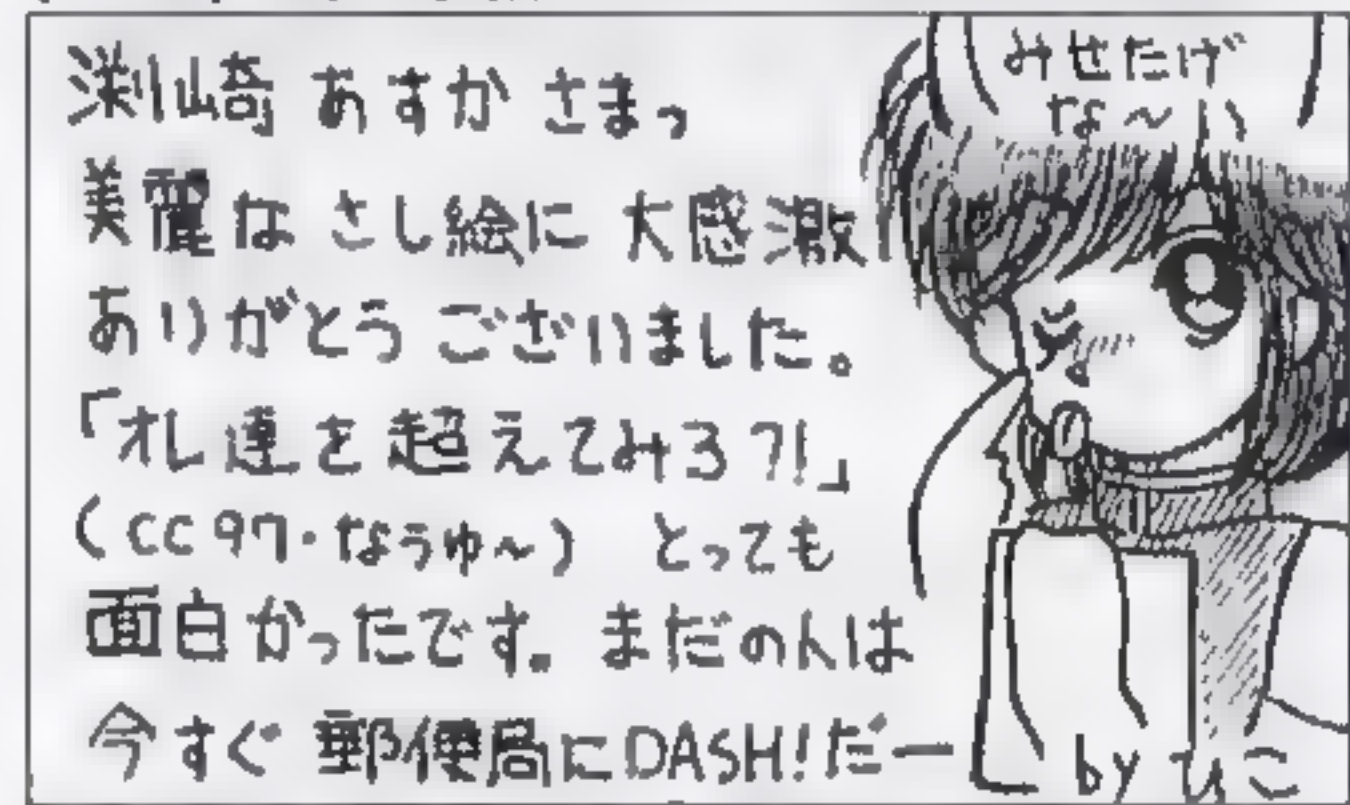 渕崎 あすか さまっ
美麗な さし絵に 大感激
ありがとう ございました。
「オレ達を 超えてみろ?!」
(CC97・なうゆ〜) とっても
面白かったです。 まだの人は
今すぐ 郵便局にDASH!だー
みせたげ
な〜い
by ひこ